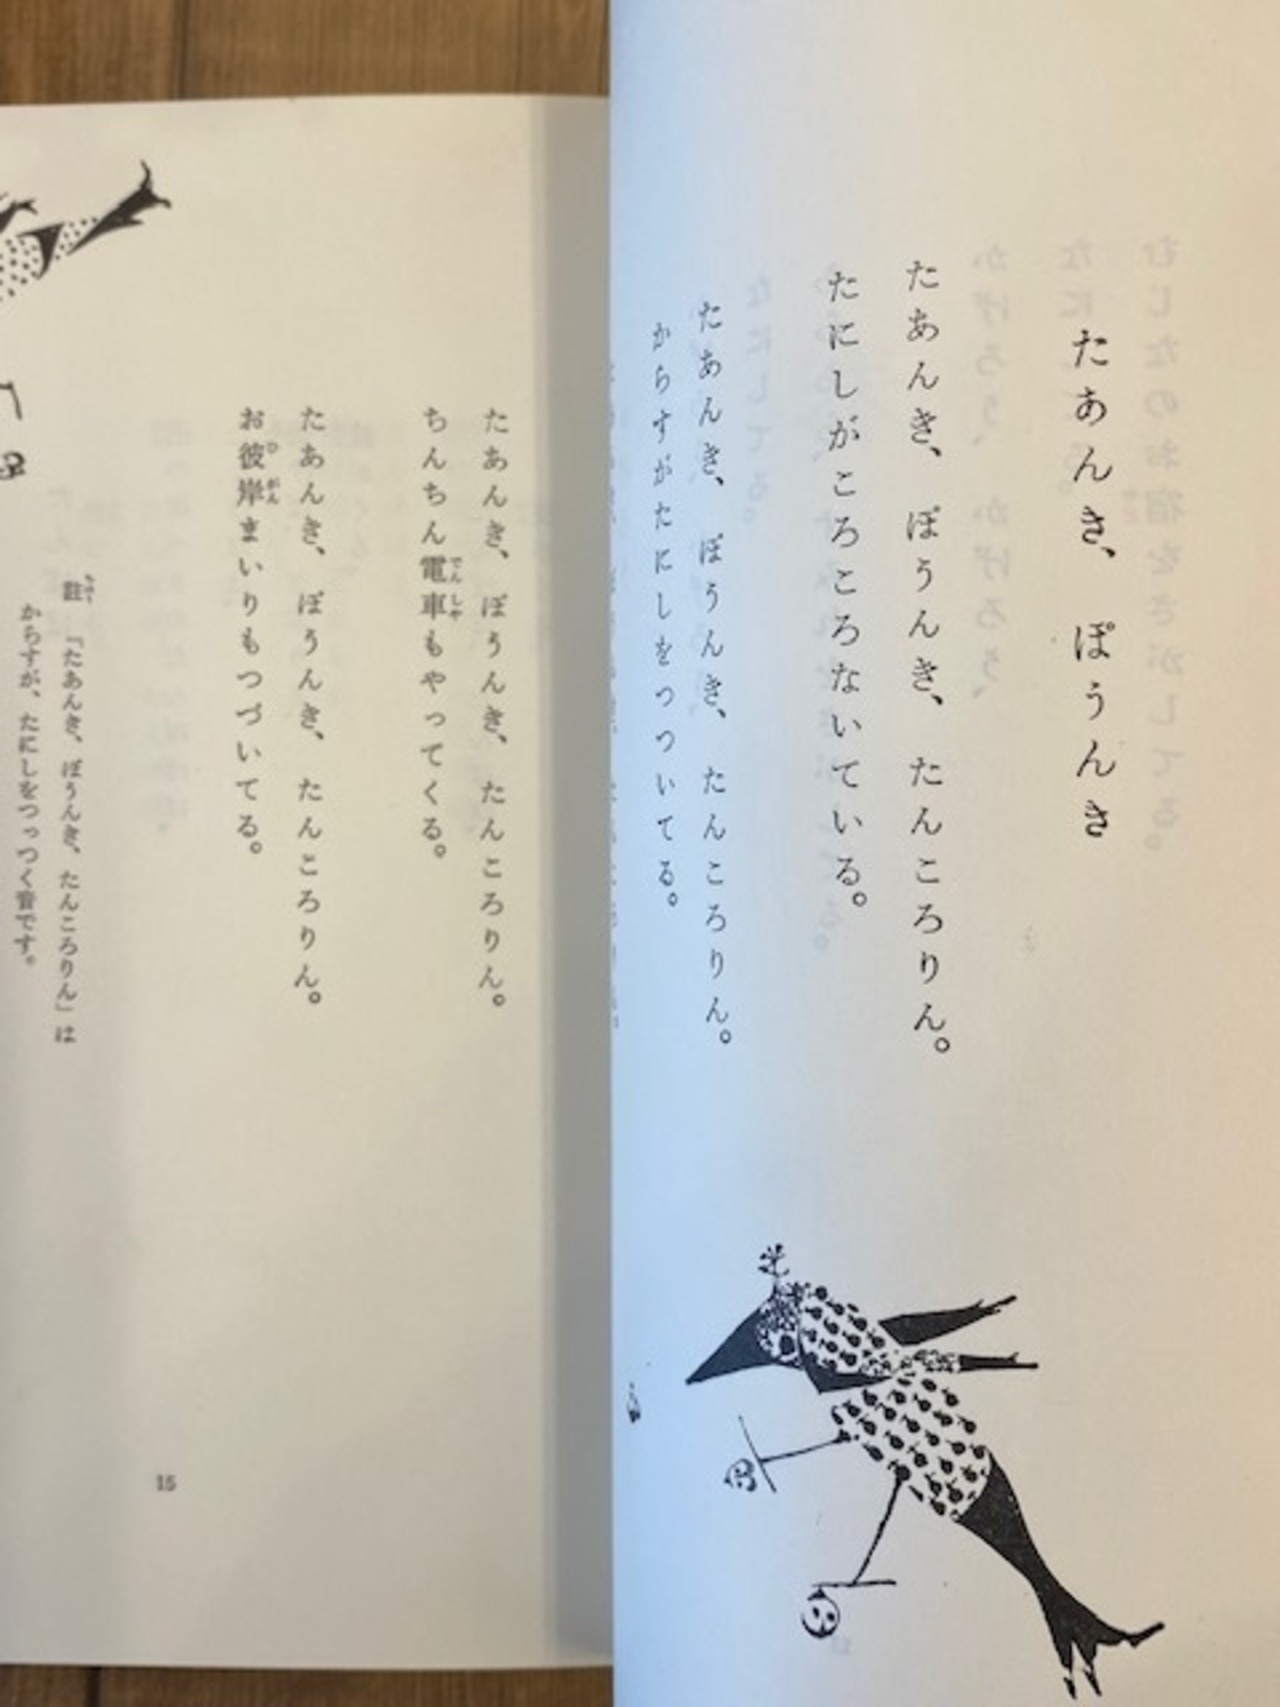 たあんき、ぽうんき
たあんき、ぽうんき、たんころりん。
たにしがころころないている。
たあんき、ぽうんき、たんころりん。
からすがたにしをつついてる。
たあんき、ぽうんき、たんころりん。
ちんちん電車もやってくる。
でんしや
たあんき、ぽうんき、たんころりん。
お彼岸まいりもつづいてる。
ひがん
註 「たあんき、ぽうんき、たんころりん」は
からすが、たにしをつっつく音です。
15